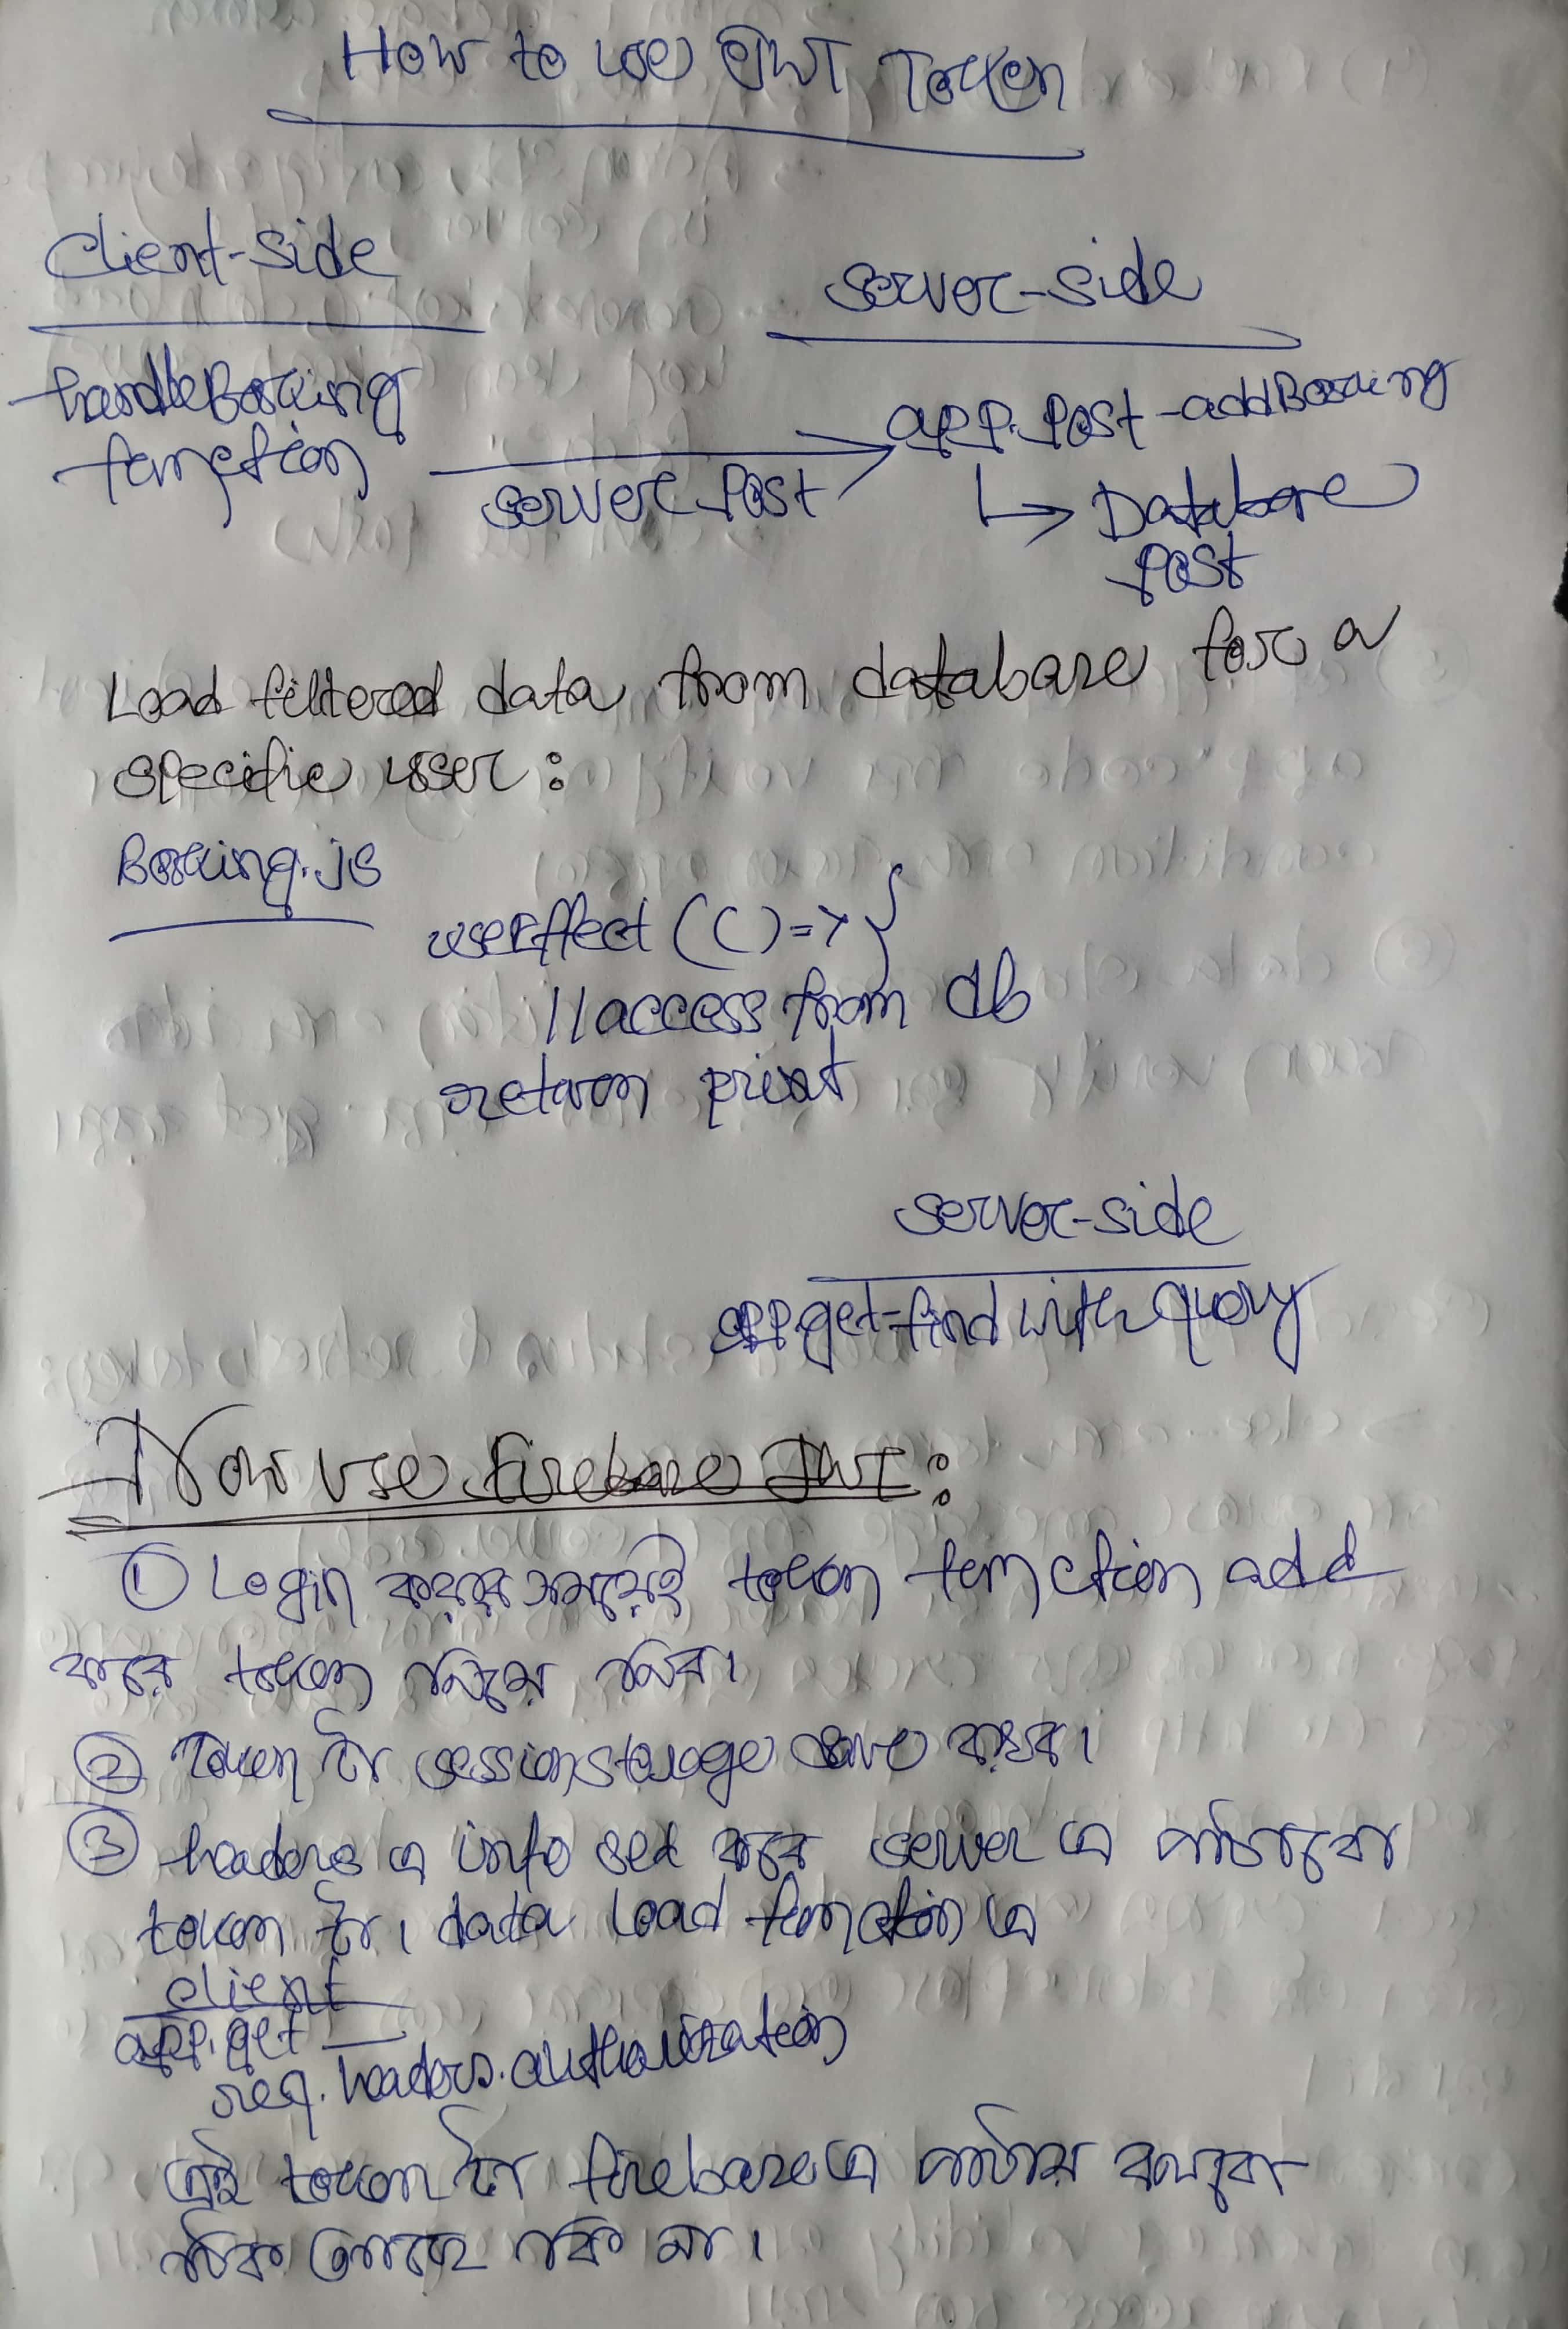 How to use JWT Token
Client-side
server-side
handleBooking
function
server post
app.post - addBooking
↳ Database
post
Load filtered data from database for a
specific user :
Booking.js
useEffect (()=> {
//access from db
return print
server-side
app.get - find with query
Now use firebase JWT :
① Login করার সময়েই token function add
করে token নিয়ে নিব।
② Token টা sessionstorage save করব।
③ headers এ info set করে server এ পাঠাবো
token টা। data load function এ
client
app.get
req.headers.authorization
এই token টা firebase এ পাঠায় বলবো
ঠিক আছে কি না।